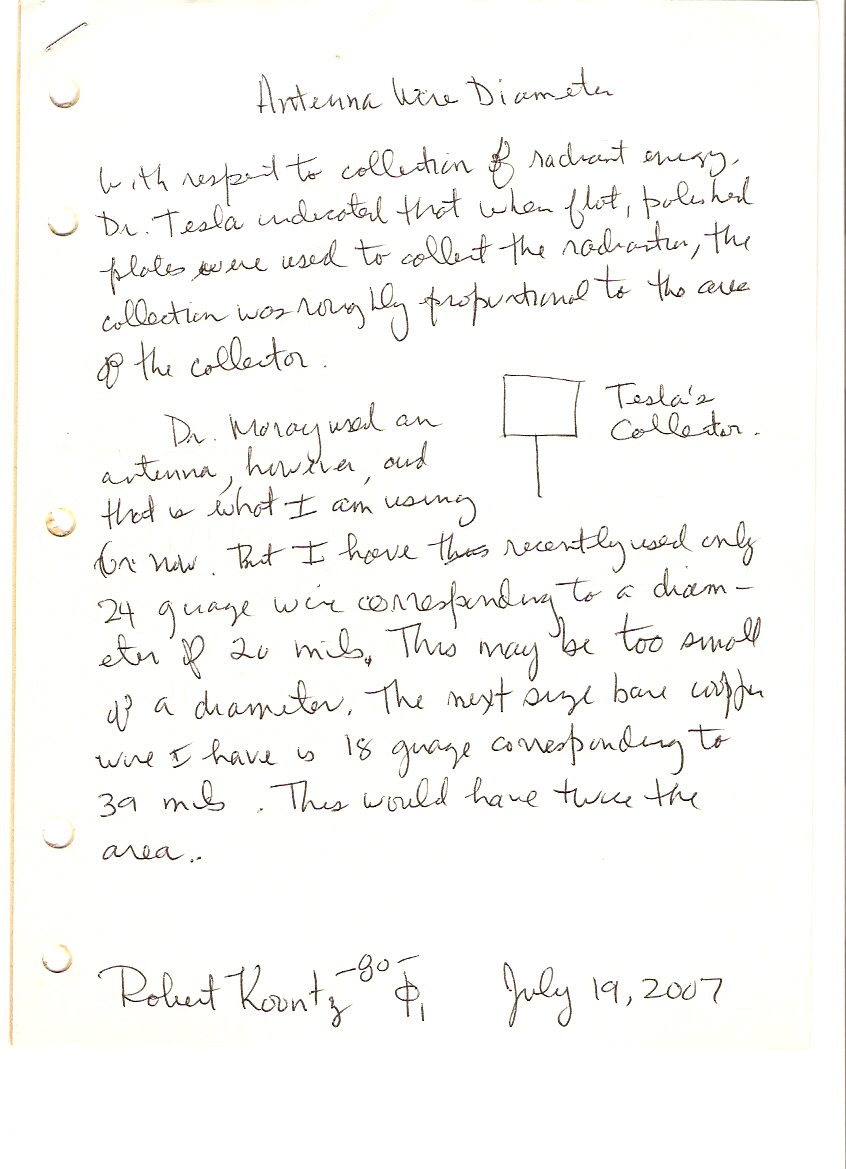 Antenna Wire Diameter
With respect to collection of radiant energy,
Dr. Tesla indicated that when flat, polished
plates were used to collect the radiation, the
collection was roughly proportional to the area
of the collector.
Tesla's
Collector.
Dr. Moray used an
antenna, however, and
that is what I am using
for now. But I have recently used only
24 guage wire corresponding to a diam-
eter of 20 mils. This may be too small
of a diameter. The next size bare copper
wire I have is 18 guage corresponding to
39 mils. This would have twice the
area..
Robert Koontz -go- July 19, 2007